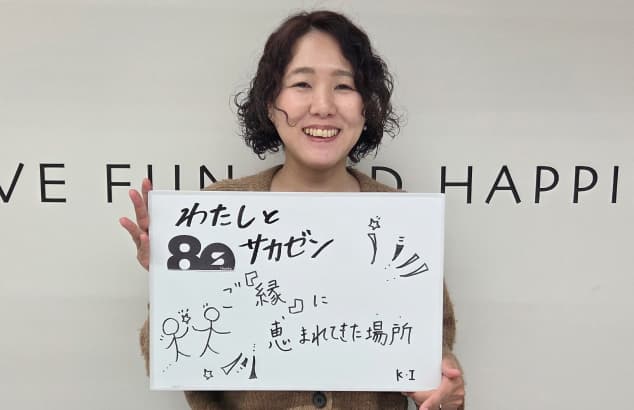 VE FUN D HAPPI
わたしと
80 サカゼン
ご『縁』に
恵まれてきた場所
K・I